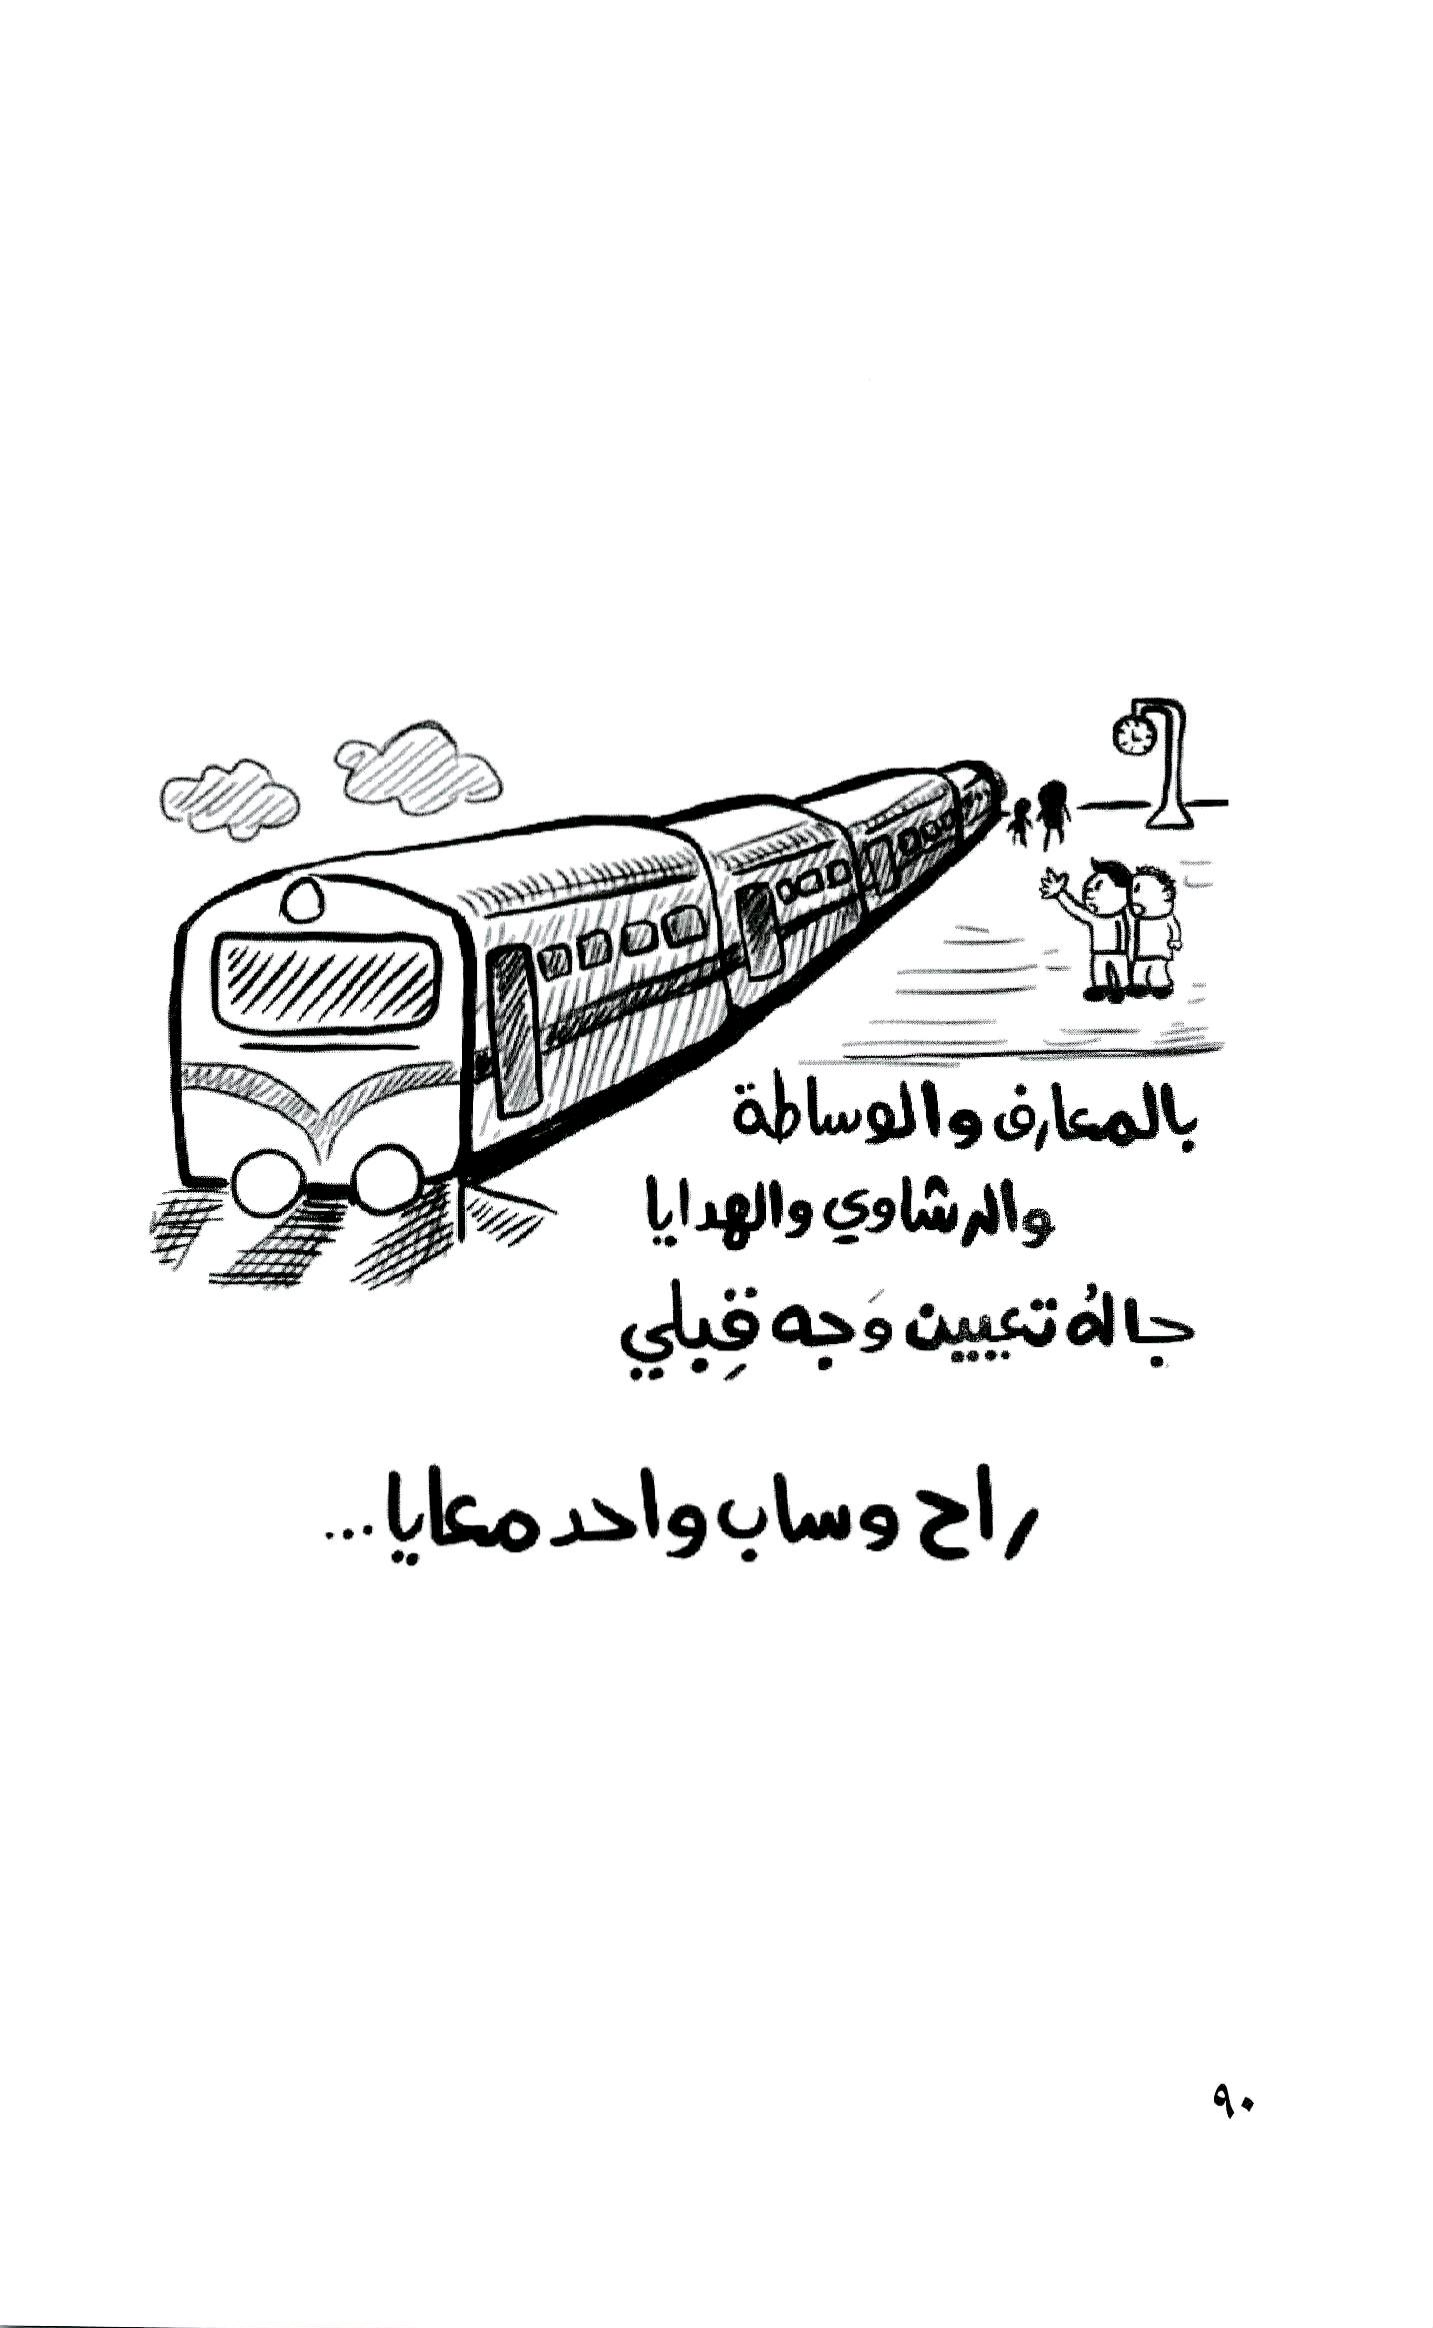 بالمعارف والوساطة
والرشاوي والهدايا
جالهُ تعيين وَجه قِبلي
راح وساب واحد معايا...
٩٠